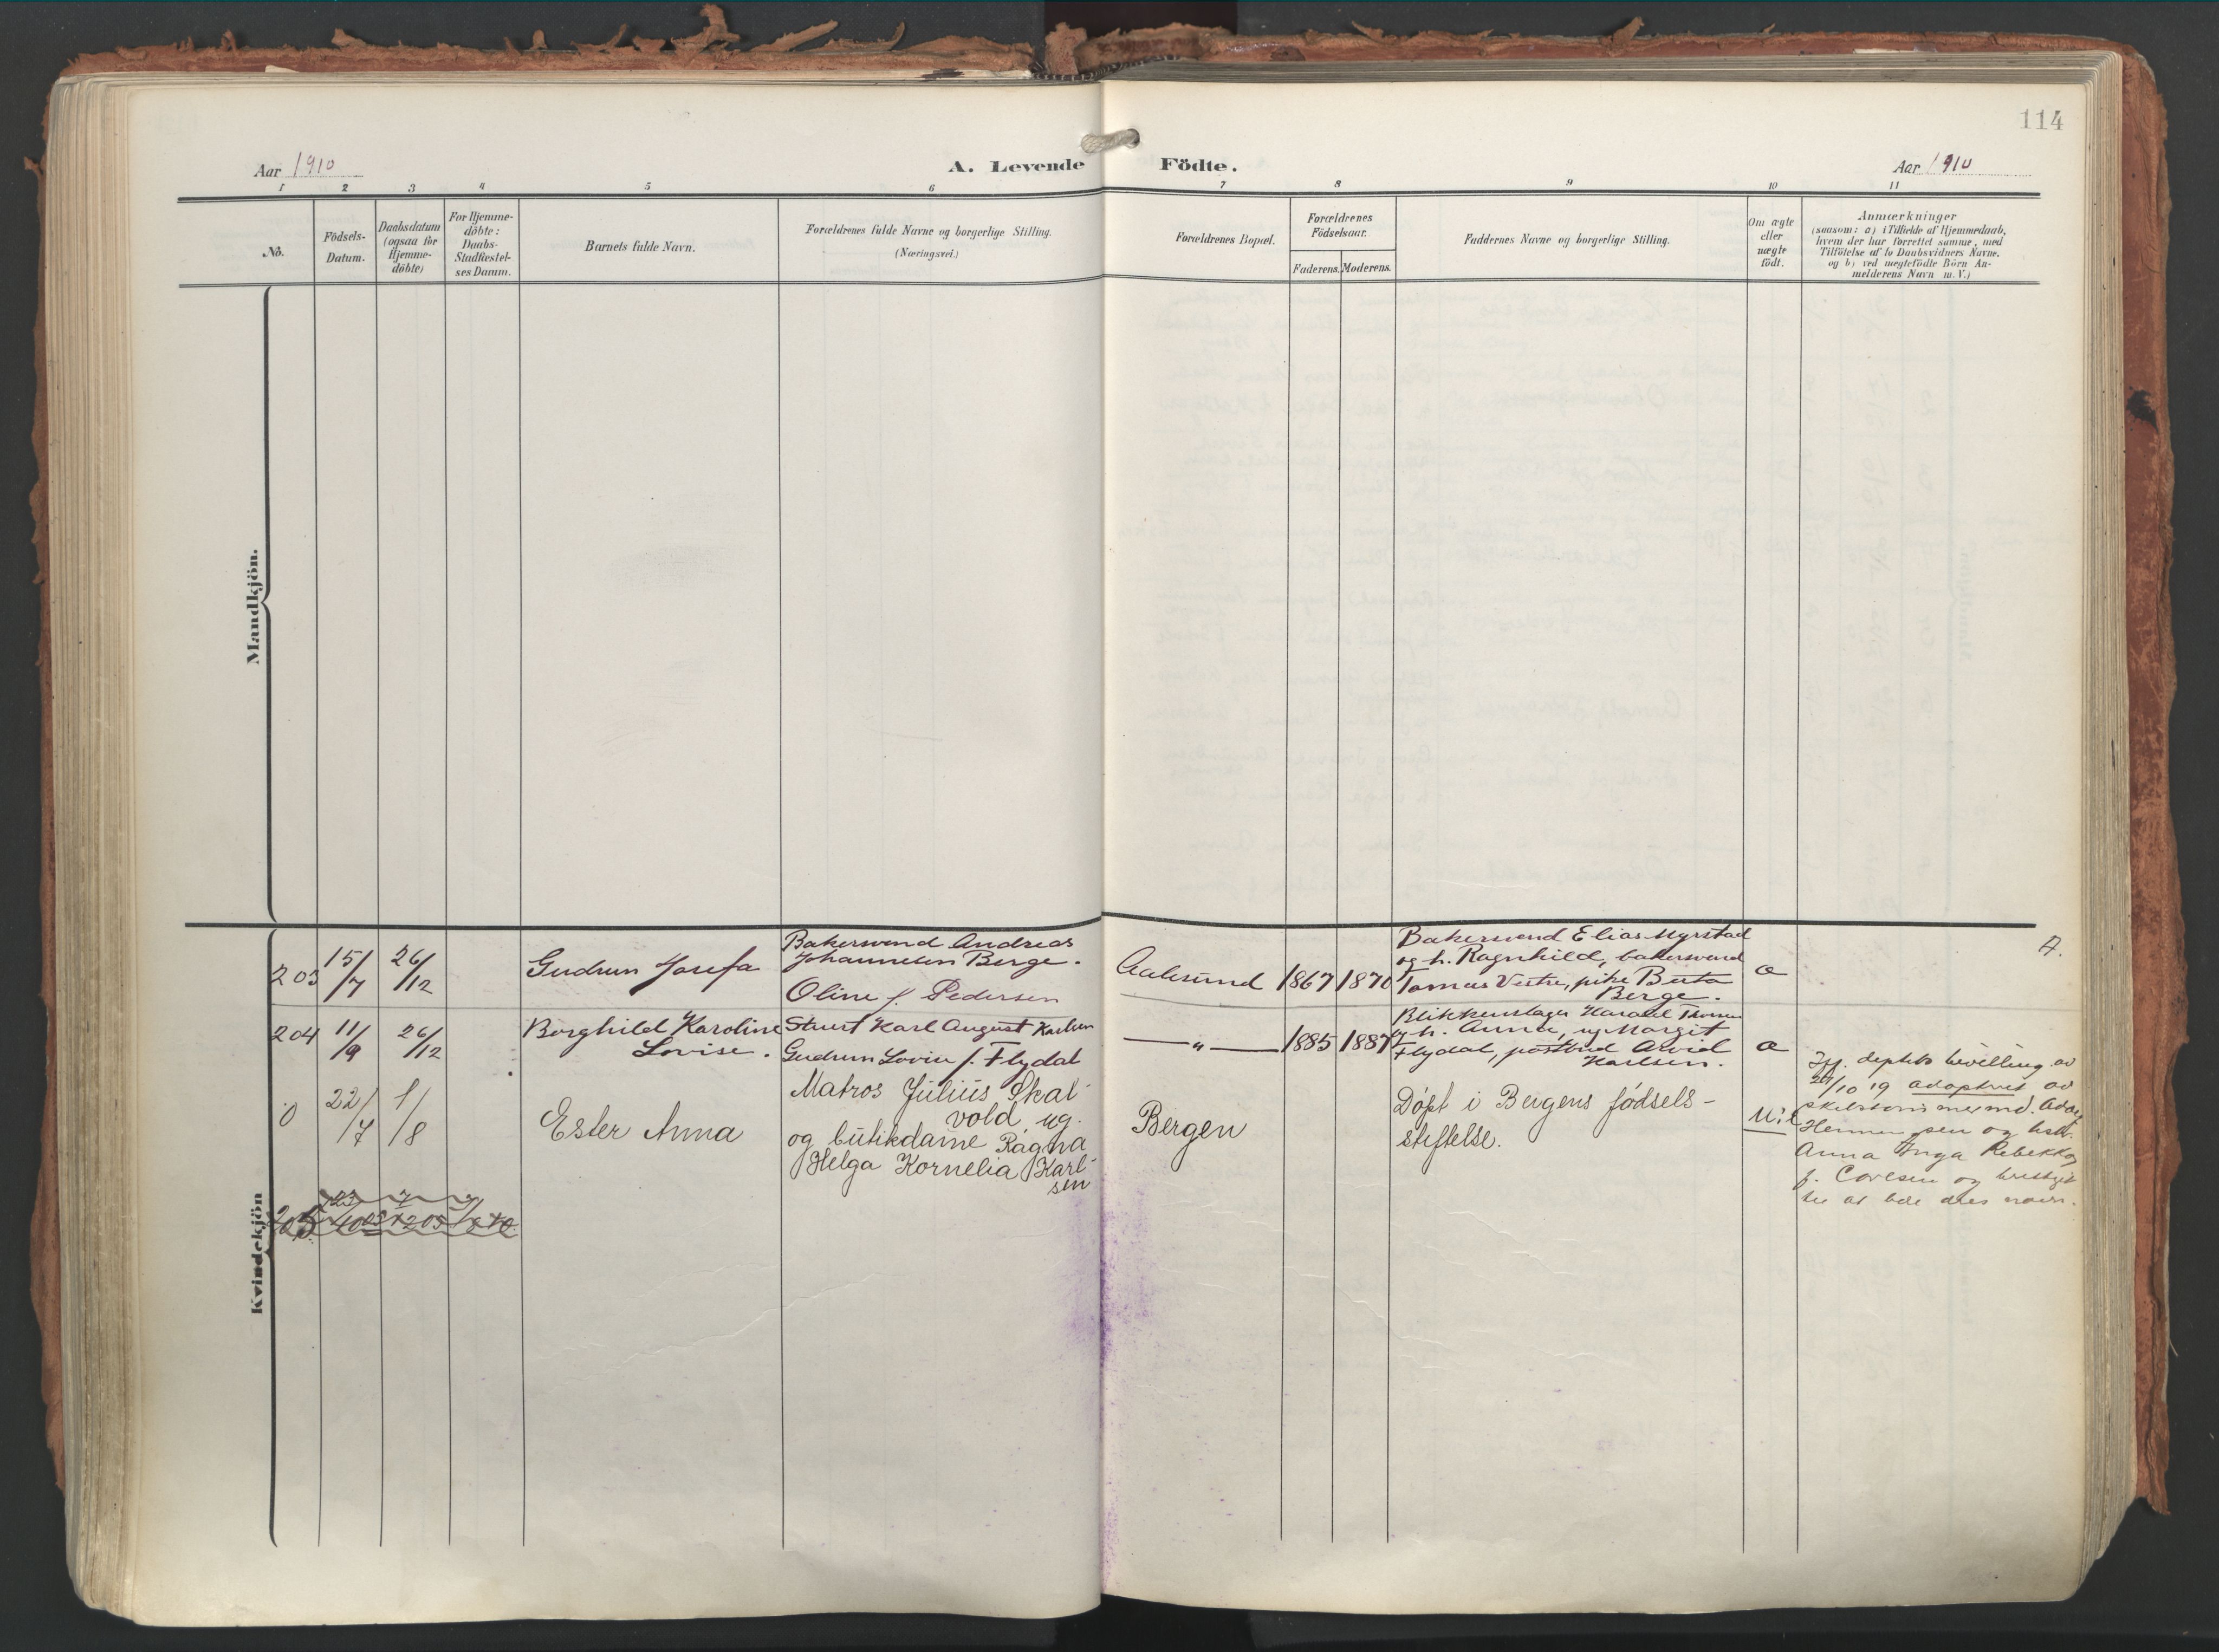 114
Aar 1910
A. Levende Födte.
Aar 1910
1 2 3 4 5 6 7 8 9 10 11
No.
Födsels-
Datum.
Daabsdatum
(ogsaa for
Hjemme-
döbte)
For Hjemme-
döbte:
Daabs-
Stadfæstel-
ses Datum.
Barnets fulde Navn.
Forældrenes fulde Navne og borgerlige Stilling.
(Næringsvei.)
Forældrenes Bopæl.
Forældrenes
Födselsaar.
Faderens. Moderens.
Faddernes Navne og borgerlige Stilling.
Om ægte
eller
uægte
födt.
Anmærkninger
(saasom: a) i Tilfælde af Hjemmedaab,
hvem der har forrettet samme, med
Tilföielse af to Daabsvidners Navne,
og b) ved uægtefödte Börn An-
melderens Navn m. V.)
Mandkjön.
Kvindekjön
203
15/7
26/12
Gudrun Josefa
Bakersvend Andreas
Johannesen Berge.
Oline f. Pedersen
Aalesund
1867
1870
Bakersvend Elias Myrstad
og h. Ragnhild, bakersvend
Tomas Vestre, pike Berta
Berge.
a
A.
204
11/9
26/12
Borghild Karoline
Lovise.
Stuert Karl August Karlsen
Gudrun Lovise f. Flydal
— " —
1885
1887
Blikkenslager Harald
og h. Anna, up Margit
Flydal, postbud Arvid
Karlsen.
a
0
22/7
1/8
Ester Anna
Matros Julius Skal-
vold, ug.
og butikdame Ragna
Helga Kornelia Karl-
sen
Bergen
Døpt i Bergens fødsels-
stiftelse.
u.
bevilling av
/10 19 adoptert av
og
Anna Inga Rebekka
f. Carlsen og
til at deres navn.
205